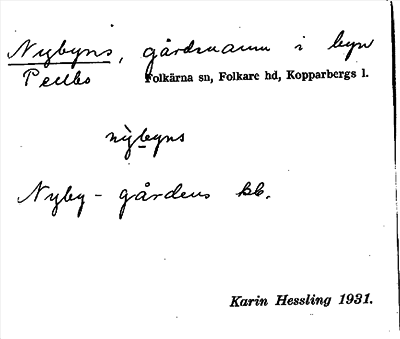 Nybyns, gårdsnamn i byn
Pellbo Folkärna sn, Folkare hd, Kopparbergs l.
nỳbyns
Nyby - gårdens bb.
Karin Hessling 1931.